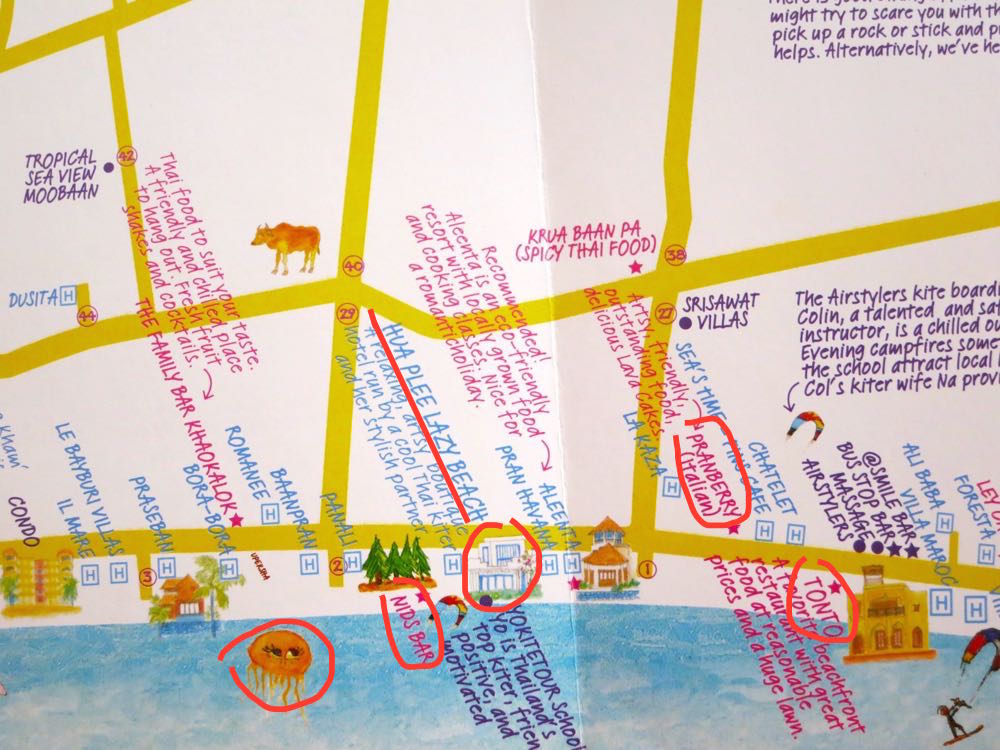 might try to scare you with th
pick up a rock or stick and p
helps. Alternatively, we've he
TROPICAL
SEA VIEW
MOOBAAN
42
Thai food to suit your taste.
A friendly and chilled place
to hang out. Fresh fruit
shakes and cocktails.
THE FAMILY BAR KHAOKALOK
DUSITA H
44
40
29
HUA PLEE LAZY BEACH
A relaxing, artsy boutique
hotel run by a cool Thai kiter
and her stylish partner
Recommended!
Aleenta is an eco-friendly
resort with locally grown food
and cooking classes. Nice for
a romantic holiday.
KRUA BAAN PA
(SPICY THAI FOOD)
38
27
SRISAWAT
VILLAS
Artsy, friendly,
outstanding food,
delicious Lava Cakes.
PRANBERRY
(Italian)
The Airstylers kite boardi
Colin, a talented and sa
instructor, is a chilled ou
Evening campfires some
the school attract local
Col's kiter wife Na provi
CONDO
LE BAYBURI VILLAS
IL MARE
PRASEBAN
BORA-BORA
ROMANEE
BAANPRAN
PANALI
PRAN HAVANA
ALEENTA
LA KAZA
SEA'S TIME
CHATELET
AIRSTYLERS
MASSAGE
BUS STOP BAR
@SMILE BAR
VILLA MAROC
ALI BABA
FORESTA
3
2
1
NIDS BAR
YOKITETOUR SCHOOL
Yo is Thailand's
top kiter, frien
positive, and
motivated
TONTO
A favorite beachfront
restaurant with great
food at reasonable
prices and a huge lawn.